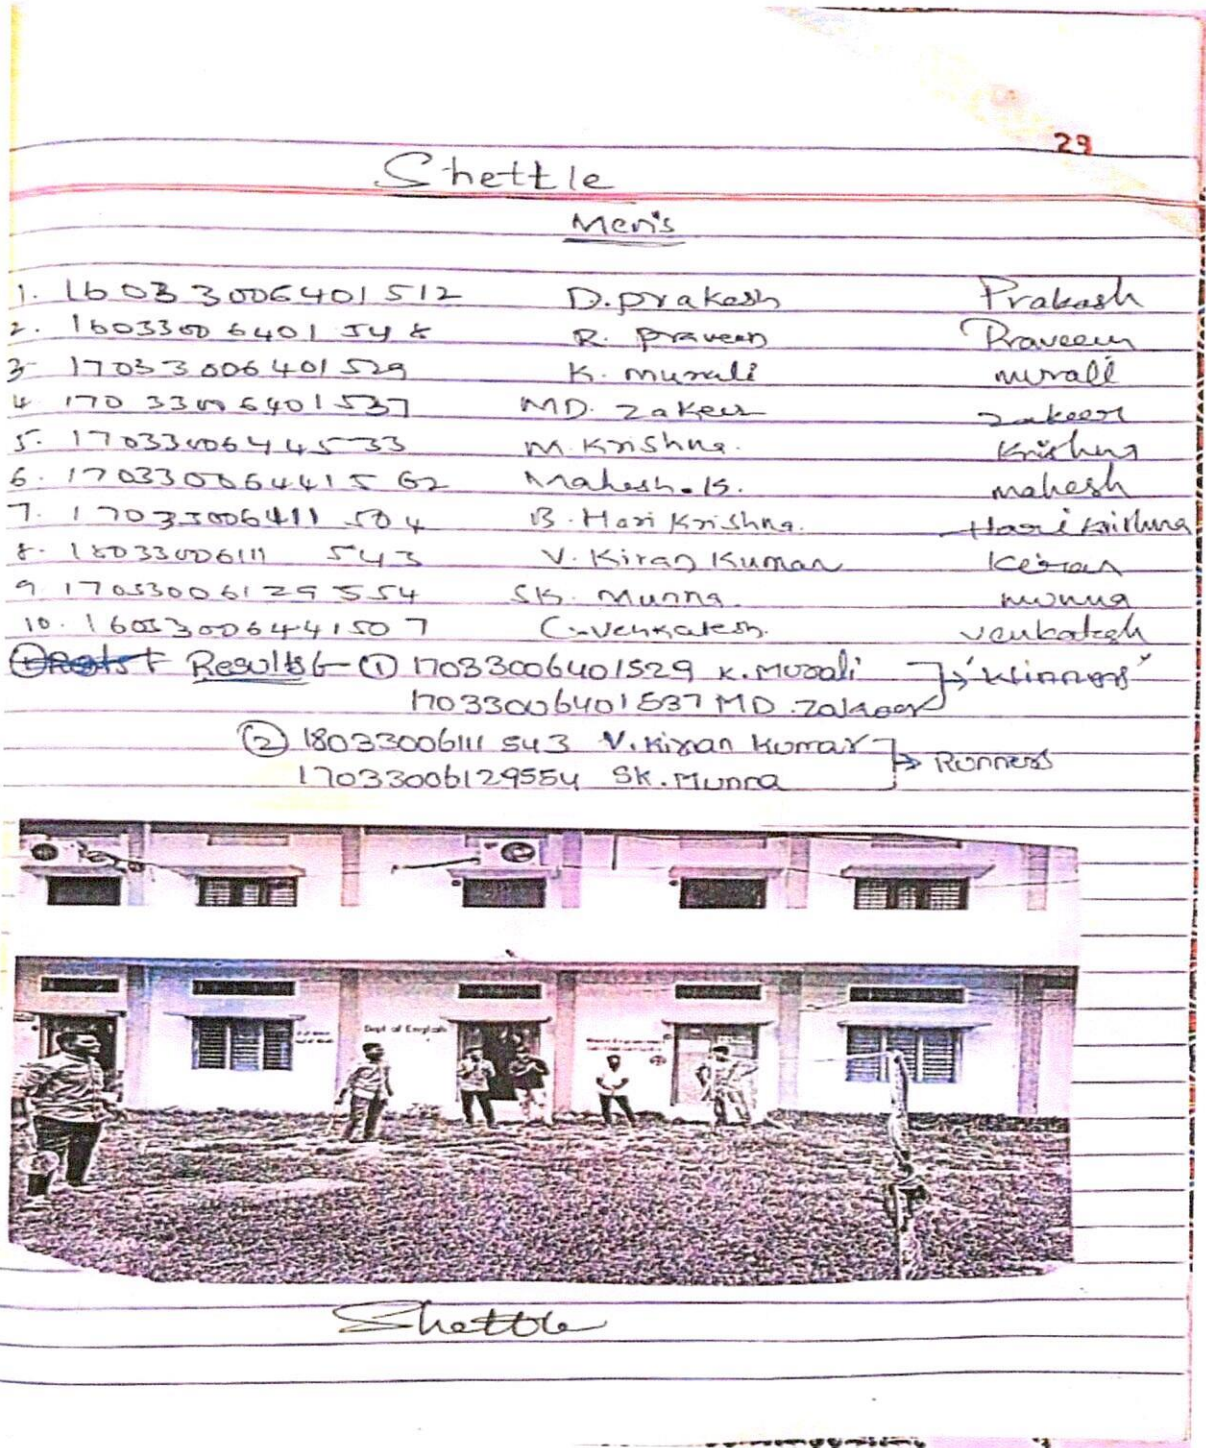 29
Shettle
Men's
1. 16033006401512 D.prakash Prakash
2. 16033006401548 R. Praveen Praveen
3- 17033006401529 K. murali murali
4. 17033006401537 MD. Zakeer Zakeer
5. 17033006445533 M.Krishna. Krishna
6. 170330064415 62 Mahesh.K. mahesh
7. 17033006411 504 B. Hari Krishna. Hari Krishna
8. 18033006111 543 V. Kiran Kumar Kiran
9. 17033006129554 SK. Munna. munna
10. 16033006441507 G.Venkatesh. Venkatesh
Results :- ① 17033006401529 K. Murali "Winners"
17033006401537 MD. Zakeer
② 18033006111 543 V. Kiran Kumar Runners
17033006129554 SK. Munna
Dept of English
Shettle